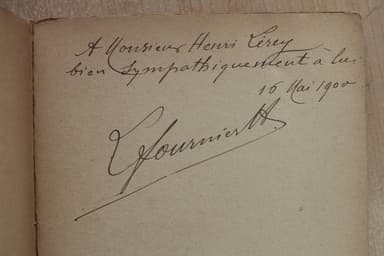 A Monsieur Henri Lerey
bien sympathiquement à lui
16 Mai 1900
LfournierH